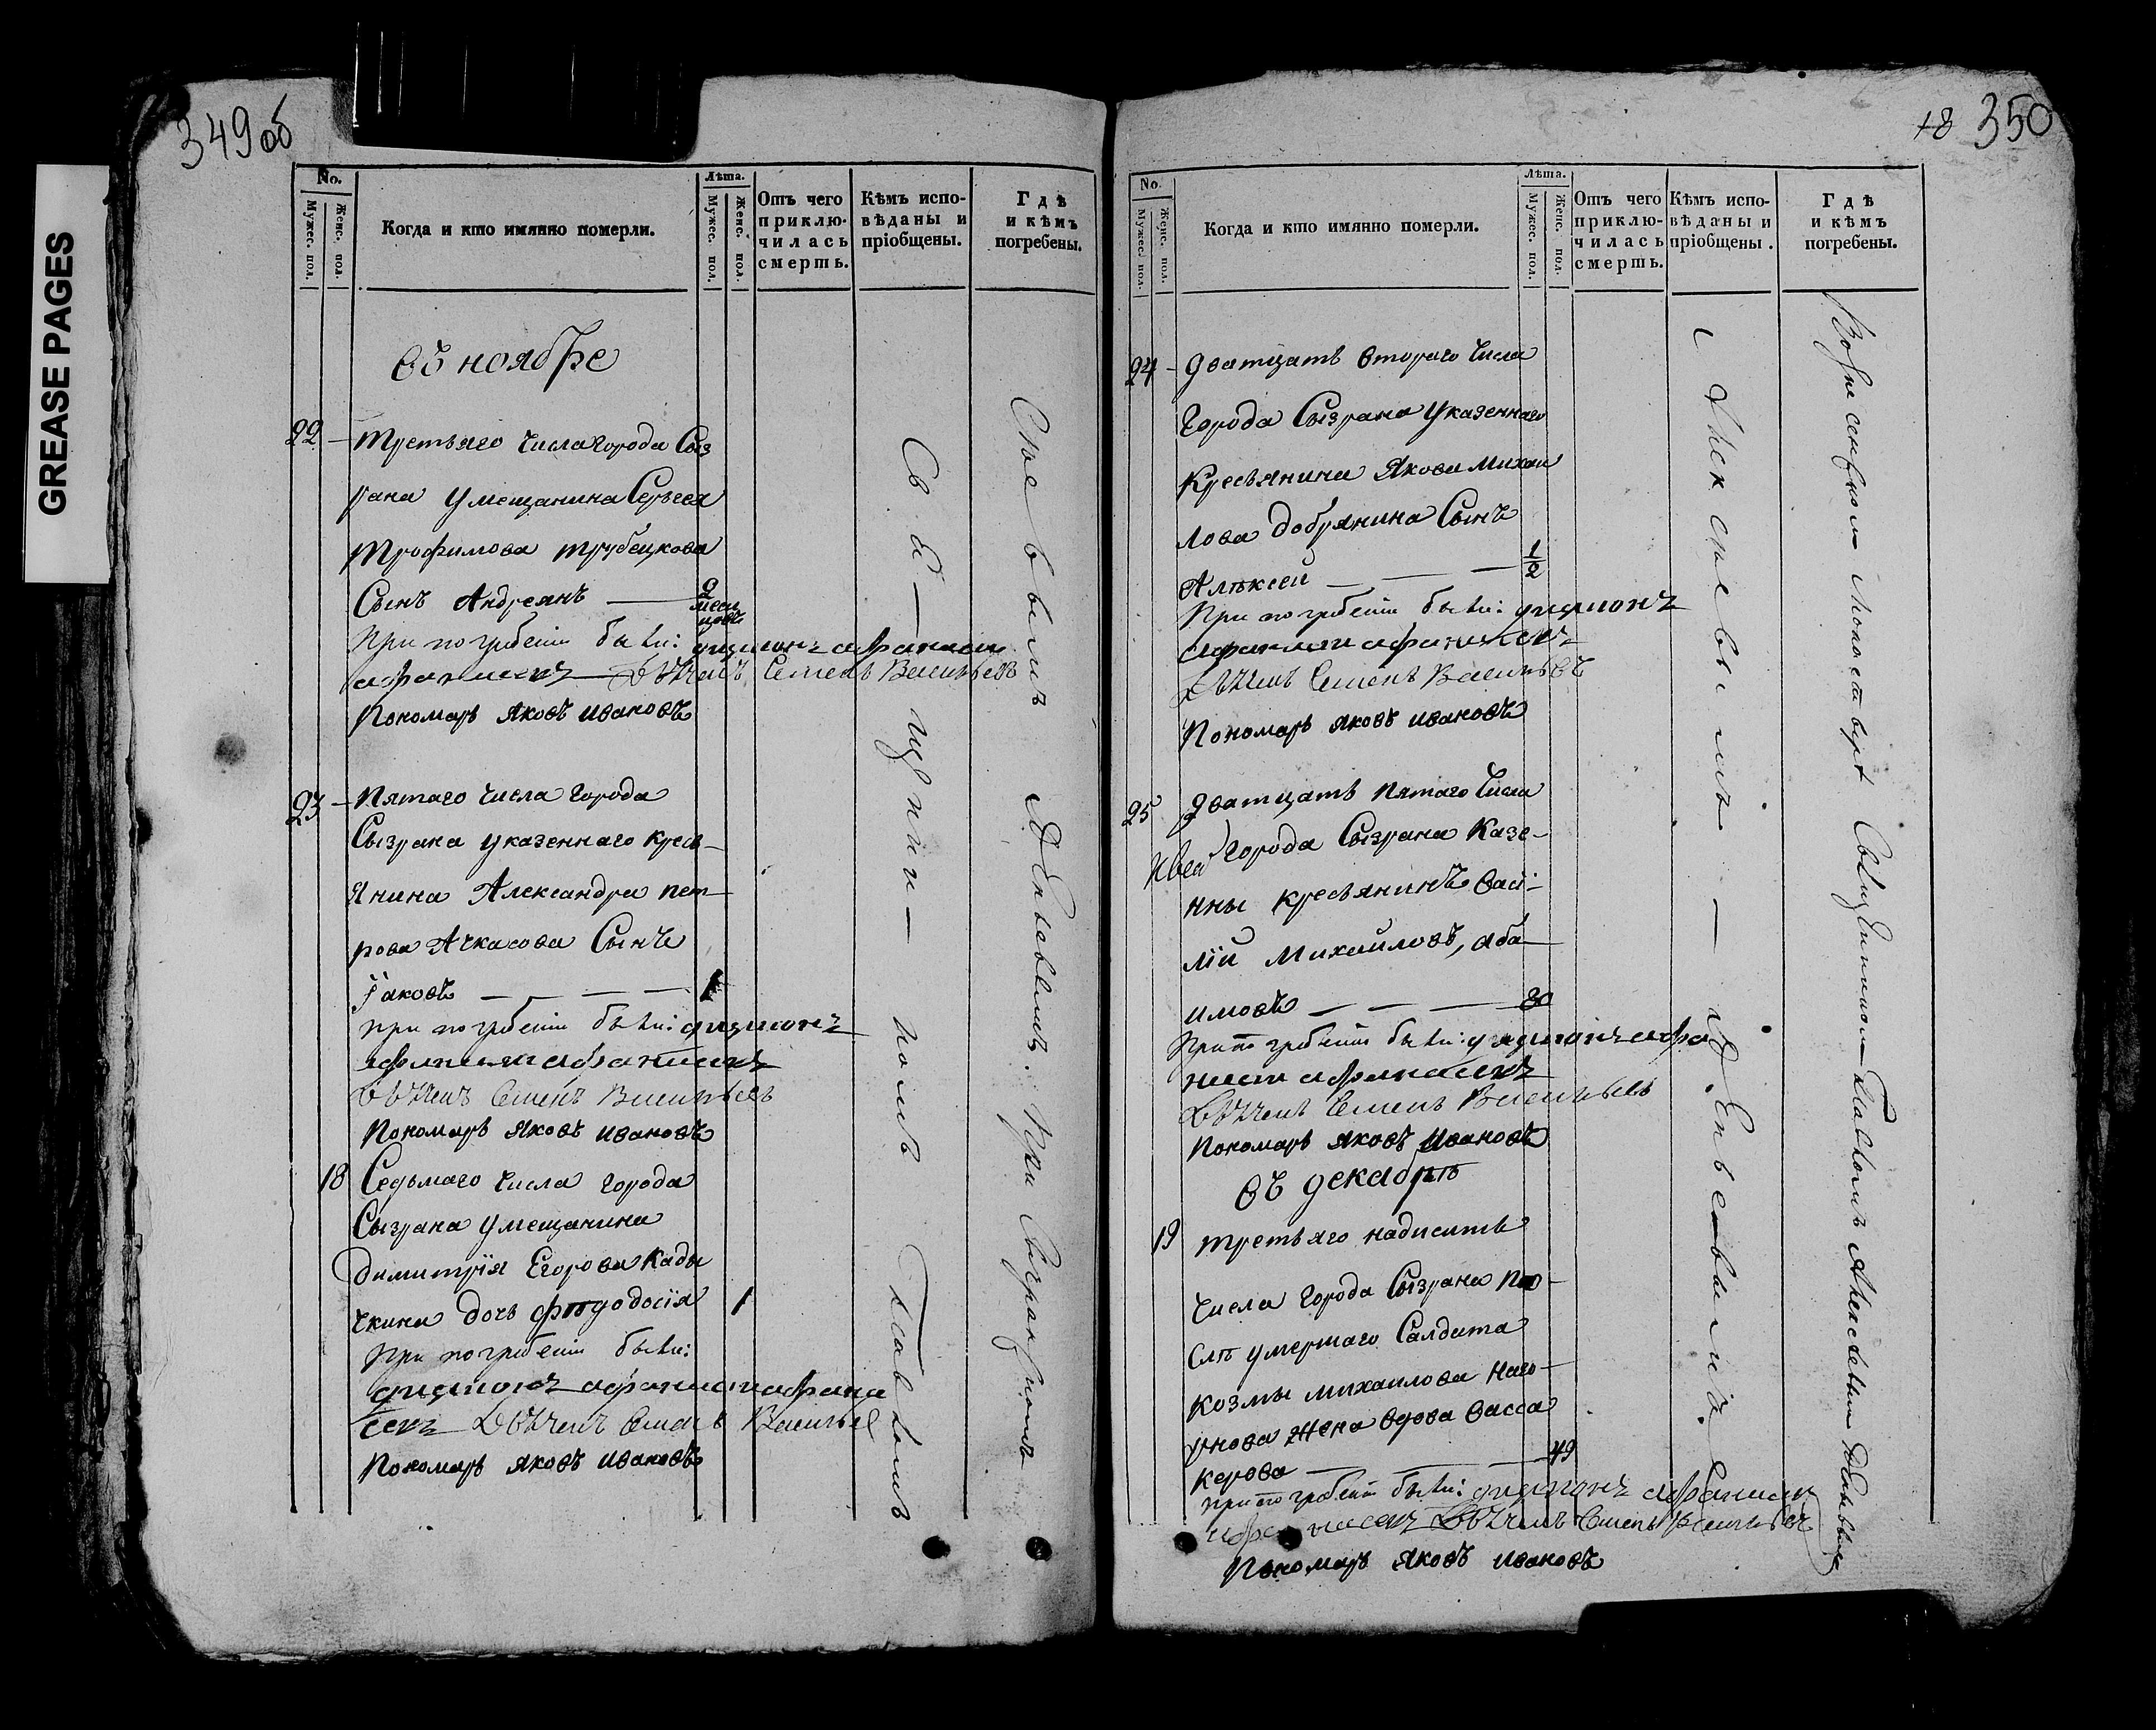 GREASE PAGES
349об
No.
Мужес. пол.
Женс. пол.
Когда и кто имянно померли.
Лѣта.
Мужес. пол.
Женс. пол.
Отъ чего приклю-
чилась смерть.
Кѣмъ испо-
вѣданы и
пріобщены.
Гдѣ
и кѣмъ
погребены.
Въ ноябре
22 — третьяго числа города Сыз
рана у мещанина Сергея
трофимова трубецкова
Сынъ Андреянъ — 2 меся
цовъ
При погребеніи были: диаконъ афанасеи
афанасевъ Дьячекъ Семенъ Васильевъ
Пономарь Яковъ Ивановъ
23 — Пятаго числа города
Сызрана у казеннаго кресь-
янина Александра пет-
рова Ачкасова Сынъ
Іаковъ — — — — 1
при погребеніи были: диаконъ
афанасеи афанасевъ
Дьячекъ Семенъ Васильевъ
Пономарь Яковъ Ивановъ
18 Седьмаго числа города
Сызрана у мещанина
Димитрія Егорова Кады
чкина дочь фѣодосія 1
При погребеніи были:
диаконъ афанасеи афана
севъ Дьячекъ Семенъ Василье
Пономарь Яковъ Ивановъ
Священникомъ Павломъ
Алексеевымъ Аѳневвымъ. При Сызранскомъ
18 350
No.
Мужес. пол.
Женс. пол.
Когда и кто имянно померли.
Лѣта.
Мужес. пол.
Женс. пол.
Отъ чего приклю-
чилась смерть.
Кѣмъ испо-
вѣданы и
пріобщены.
Гдѣ
и кѣмъ
погребены.
24 — Дватцать втораго числа
города Сызрана у казеннаго
кресьянина Якова михаи
лова добрянина Сынъ
Алѣксеи — — — 1/2
При погребеніи были: диаконъ
афанасеи афанасевъ
Дьячекъ Семенъ Васильевъ
Пономарь Яковъ Ивановъ
25 Дватцать пятаго числа
города Сызрана казе-
нны кресьянинъ васи-
лій Михаиловъ, аба-
имовъ — — — 80
При погребеніи были: диаконъ афа
насеи афанасевъ
Дьячекъ Семенъ Васильевъ
Пономарь Яковъ Ивановъ
Въ декабрѣ
19 третьяго надисять
числа города Сызрана по-
слѣ умершаго Салдата
козмы михаилова наго-
рнова жена вдова васса
карпова — — — 49
При погребеніи были: диаконъ афанасеи
афанасевъ Дьячекъ Семенъ Васильевъ
Пономарь Яковъ Ивановъ
Алексеевымъ —
Священникомъ Павломъ Алексеевымъ